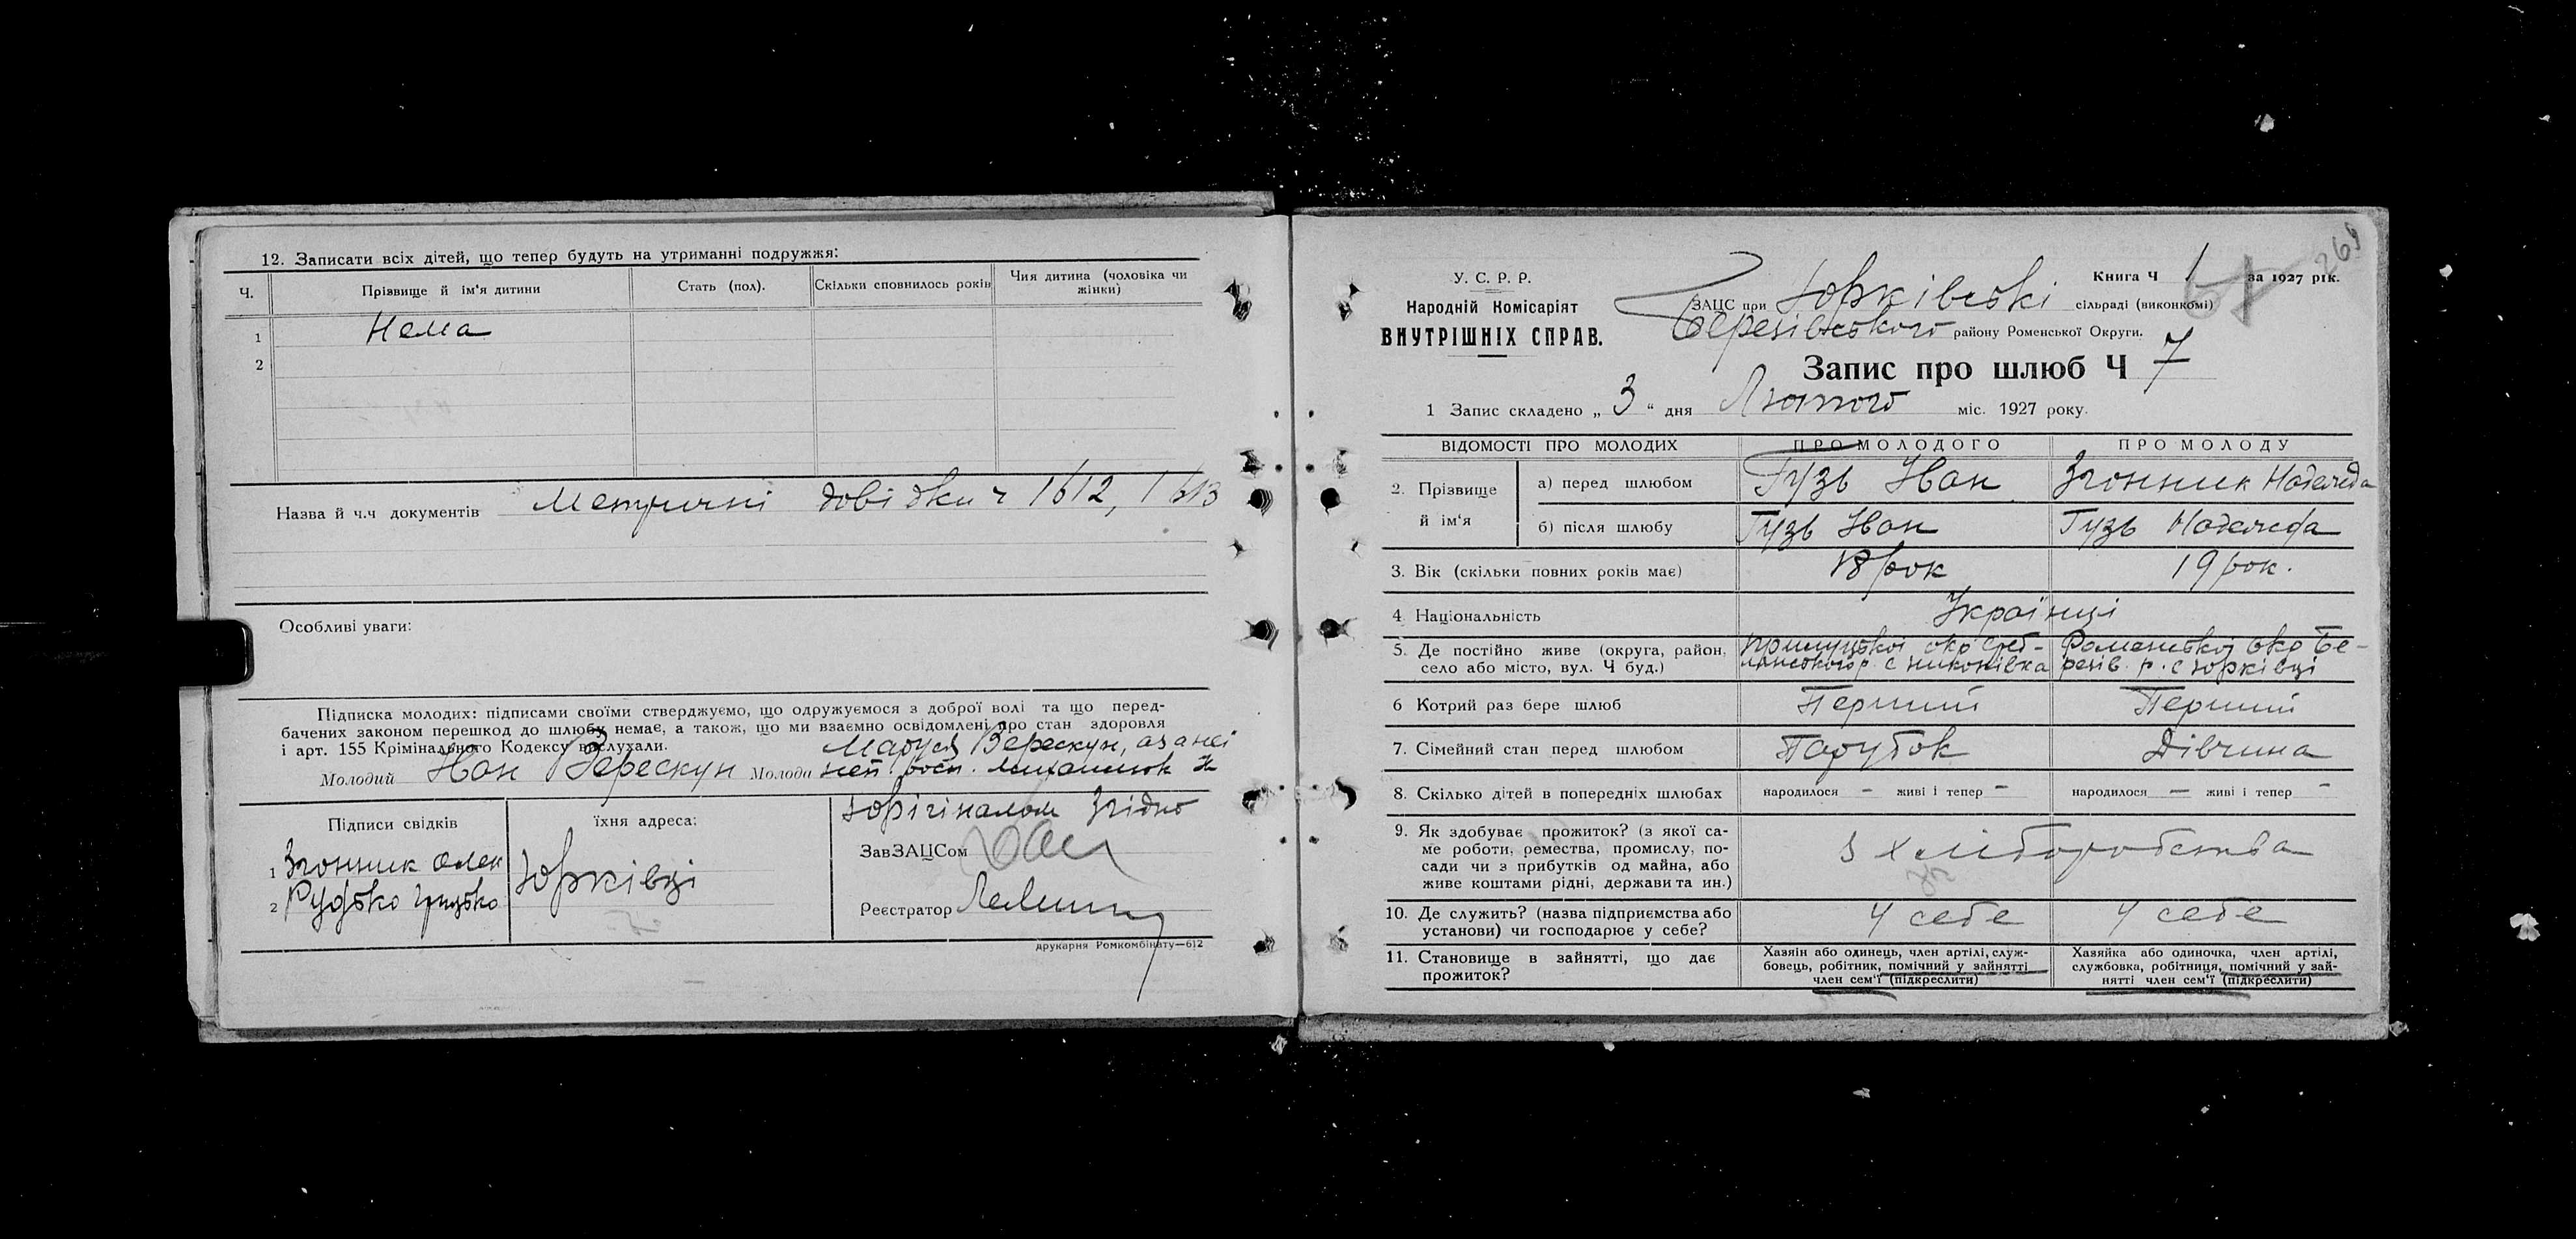 12. Записати всіх дітей, що тепер будуть на утриманні подружжя:
Ч. Прізвище й ім'я дитини Стать (пол). Скільки сповнилось років Чия дитина (чоловіка чи жінки)
1 Нема
2
Назва й ч.ч документів Метричні довідки ч 1612, 1613
Особливі уваги:
Підписка молодих: підписами своїми стверджуємо, що одружуємося з доброї волі та що перед-
бачених законом перешкод до шлюбу немає, а також, що ми взаємно освідомлені про стан здоровля
і арт. 155 Крімінального Кодексу вислухали.
Маруся Верескун, а за неї
Молодий Иван Верескун Молода неп. росп.
Підписи свідків їхня адреса:
з орігіналом згідно
1 Згонник Олек Юрківці
ЗавЗАЦСом
2 Рудько Грицько
Реєстратор
друкарня Ромкомбінату—612
269
У. С. Р. Р.
Народній Комісаріят
ВНУТРІШНІХ СПРАВ.
Книга Ч 1 за 1927 рік.
ЗАЦС при Юрківські сільраді (виконкомі)
Березівського району Роменської Округи.
Запис про шлюб Ч 7
1 Запис складено „ 3 “ дня Лютого міс. 1927 року.
ВІДОМОСТІ ПРО МОЛОДИХ ПРО МОЛОДОГО ПРО МОЛОДУ
2. Прізвище й ім'я а) перед шлюбом Гузь Иван Згонник Надежда
б) після шлюбу Гузь Иван Гузь Надежда
3. Вік (скільки повних років має) 18 рок 19 рок.
4 Національність Українці
5. Де постійно живе (округа, район, Прилуцької окр Среб- Роменської окр Бе-
село або місто, вул. Ч буд.) лянського р. с Никонівка резів. р. с Юрківці
6 Котрий раз бере шлюб Перший Перший
7. Сімейний стан перед шлюбом Парубок Дівчина
8. Скілько дітей в попередніх шлюбах народилося - живі і тепер - народилося — живі і тепер -
9. Як здобуває прожиток? (з якої са-
ме роботи, ремества, промислу, по-
сади чи з прибутків од майна, або
живе коштами рідні, держави та ин.)
з хліборобства
10. Де служить? (назва підприємства або
установи) чи господарює у себе?
У себе У себе
11. Становище в зайнятті, що дає
прожиток?
Хазяїн або одинець, член артілі, служ-
бовець, робітник, помічний у зайнятті
член сем'ї (підкреслити)
Хазяйка або одиночка, член артілі,
службовка, робітниця, помічний у зай-
нятті член сем'ї (підкреслити)